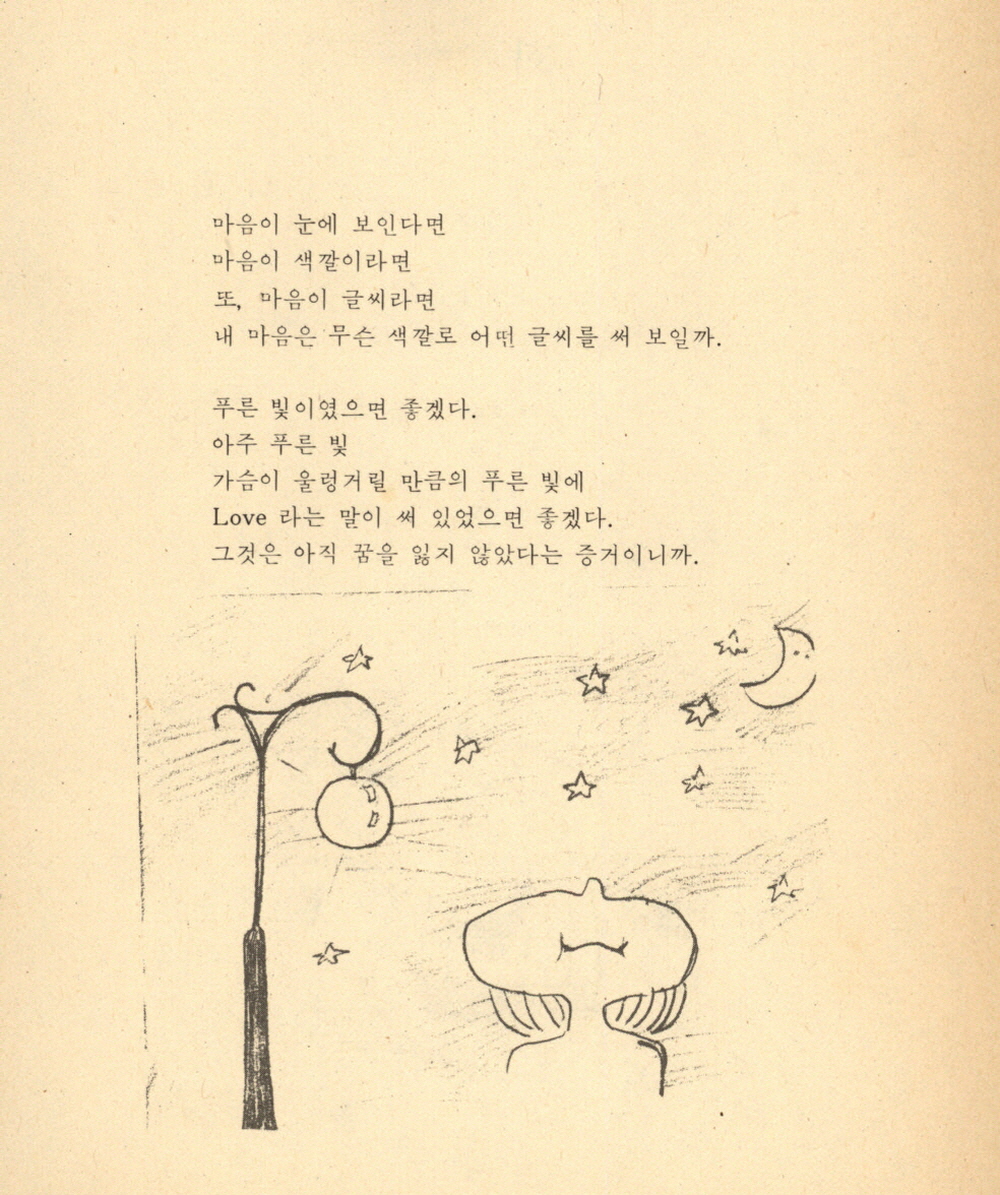 마음이 눈에 보인다면
마음이 색깔이라면
또, 마음이 글씨라면
내 마음은 무슨 색깔로 어떤 글씨를 써 보일까.
푸른 빛이였으면 좋겠다.
아주 푸른 빛
가슴이 울렁거릴 만큼의 푸른 빛에
Love 라는 말이 써 있었으면 좋겠다.
그것은 아직 꿈을 잃지 않았다는 증거이니까.